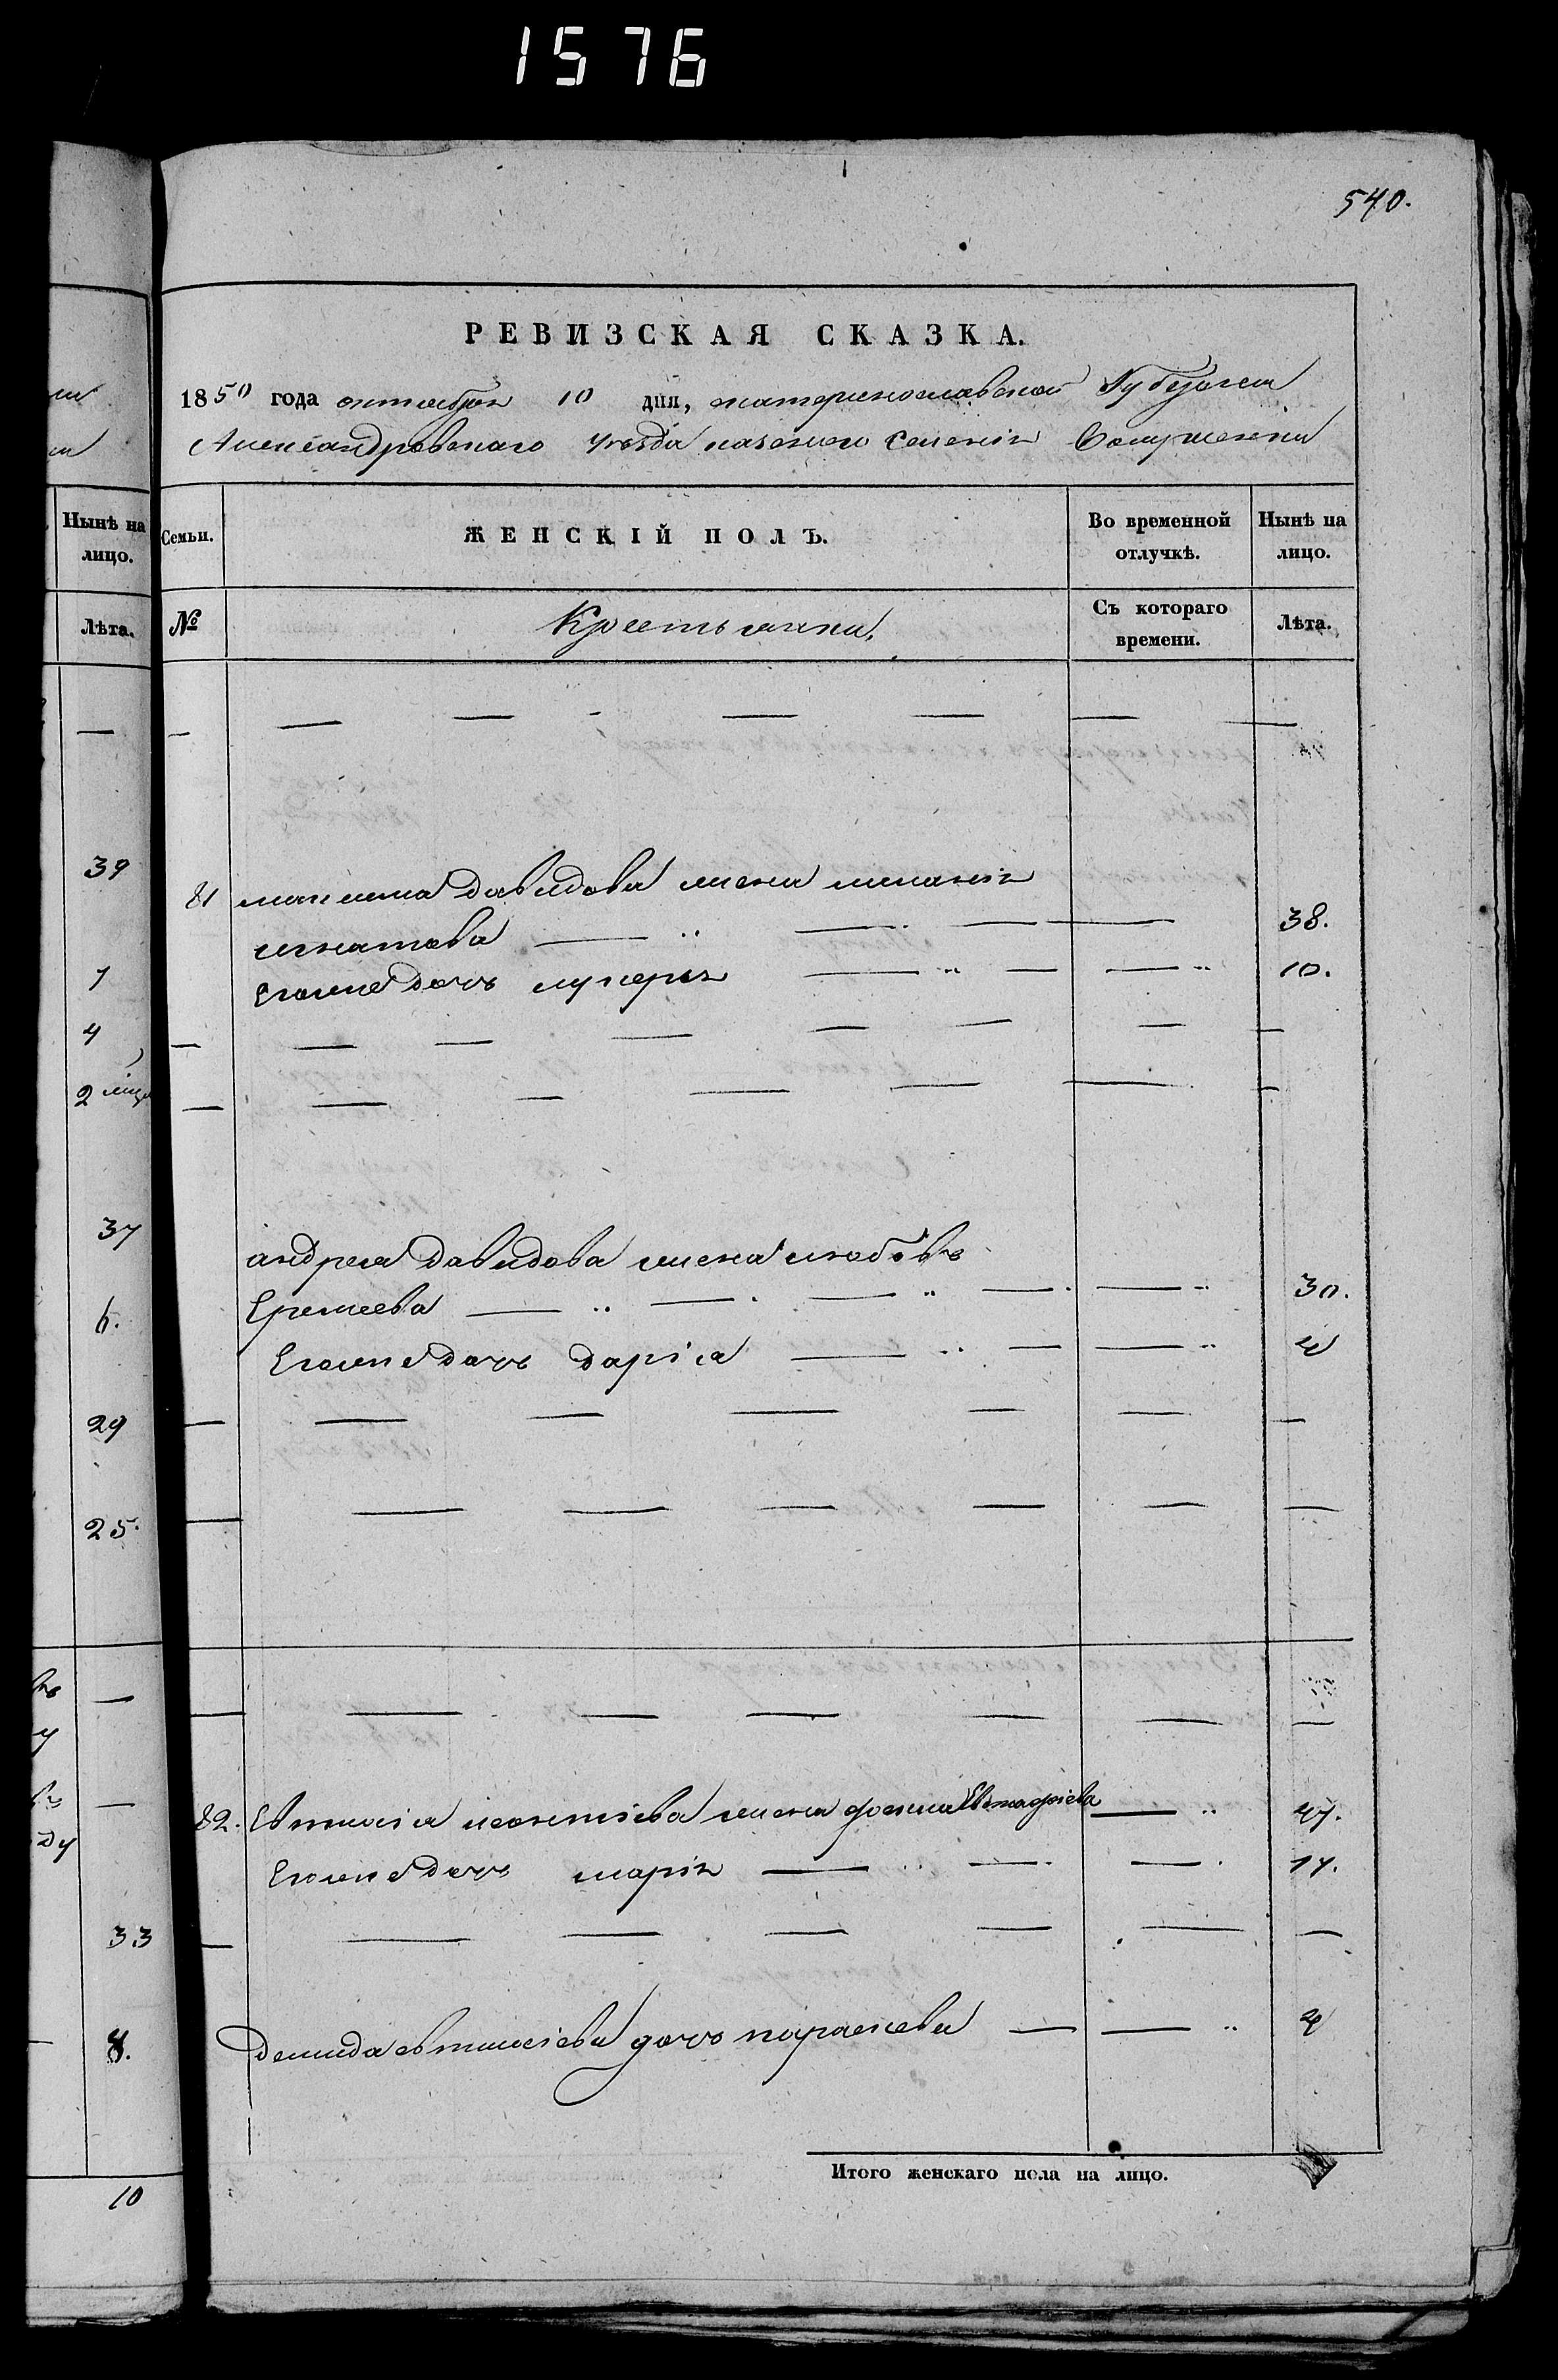 1576
540.
РЕВИЗСКАЯ СКАЗКА.
1850 года октября 10 дня, екатеринославской Губерніи
Александровскаго уезда казеннаго селенія
Нынѣ на лицо.
Семьи.
ЖЕНСКІЙ ПОЛЪ.
Во временной отлучкѣ.
Нынѣ на лицо.
Лѣта.
№
Крестьянки.
Съ котораго времени.
Лѣта.
— — — — —
39
81 максима давидова жена меланія
игнатова — " — — — 38.
7
Егоже дочь лукерія — " — — " 10.
4
2 мца
37
андрея давидова жена любовь
6.
Еремеева — " — — " — — " 30.
Егоже дочь дарія — " — — " 4
29
25.
82. Евтихія леонтіева жена фекла Евстафіева — " 47.
Егоже дочь марія — " — — 14.
33
8.
демида евтихіева дочь парасковя — — " 4
Итого женскаго пола на лицо.
10